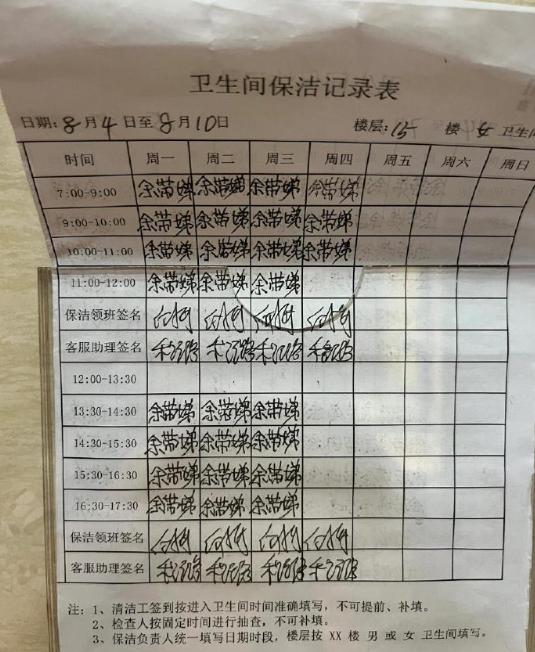 卫生间保洁记录表
日期:8月4日至8月10日 楼层:15 楼 女 卫生间
时间 周一 周二 周三 周四 周五 周六 周日
7:00-9:00 余带娣 余带娣 余带娣 余带娣
9:00-10:00 余带娣 余带娣 余带娣 余带娣
10:00-11:00 余带娣 余带娣 余带娣 余带娣
11:00-12:00 余带娣 余带娣 余带娣
保洁领班签名
客服助理签名
12:00-13:30
13:30-14:30 余带娣 余带娣 余带娣
14:30-15:30 余带娣 余带娣 余带娣
15:30-16:30 余带娣 余带娣 余带娣
16:30-17:30 余带娣 余带娣 余带娣
保洁领班签名
客服助理签名
注:1、清洁工签到按进入卫生间时间准确填写,不可提前、补填。
2、检查人按固定时间进行抽查,不可补填。
3、保洁负责人统一填写日期时段,楼层按 XX 楼 男 或 女 卫生间填写。